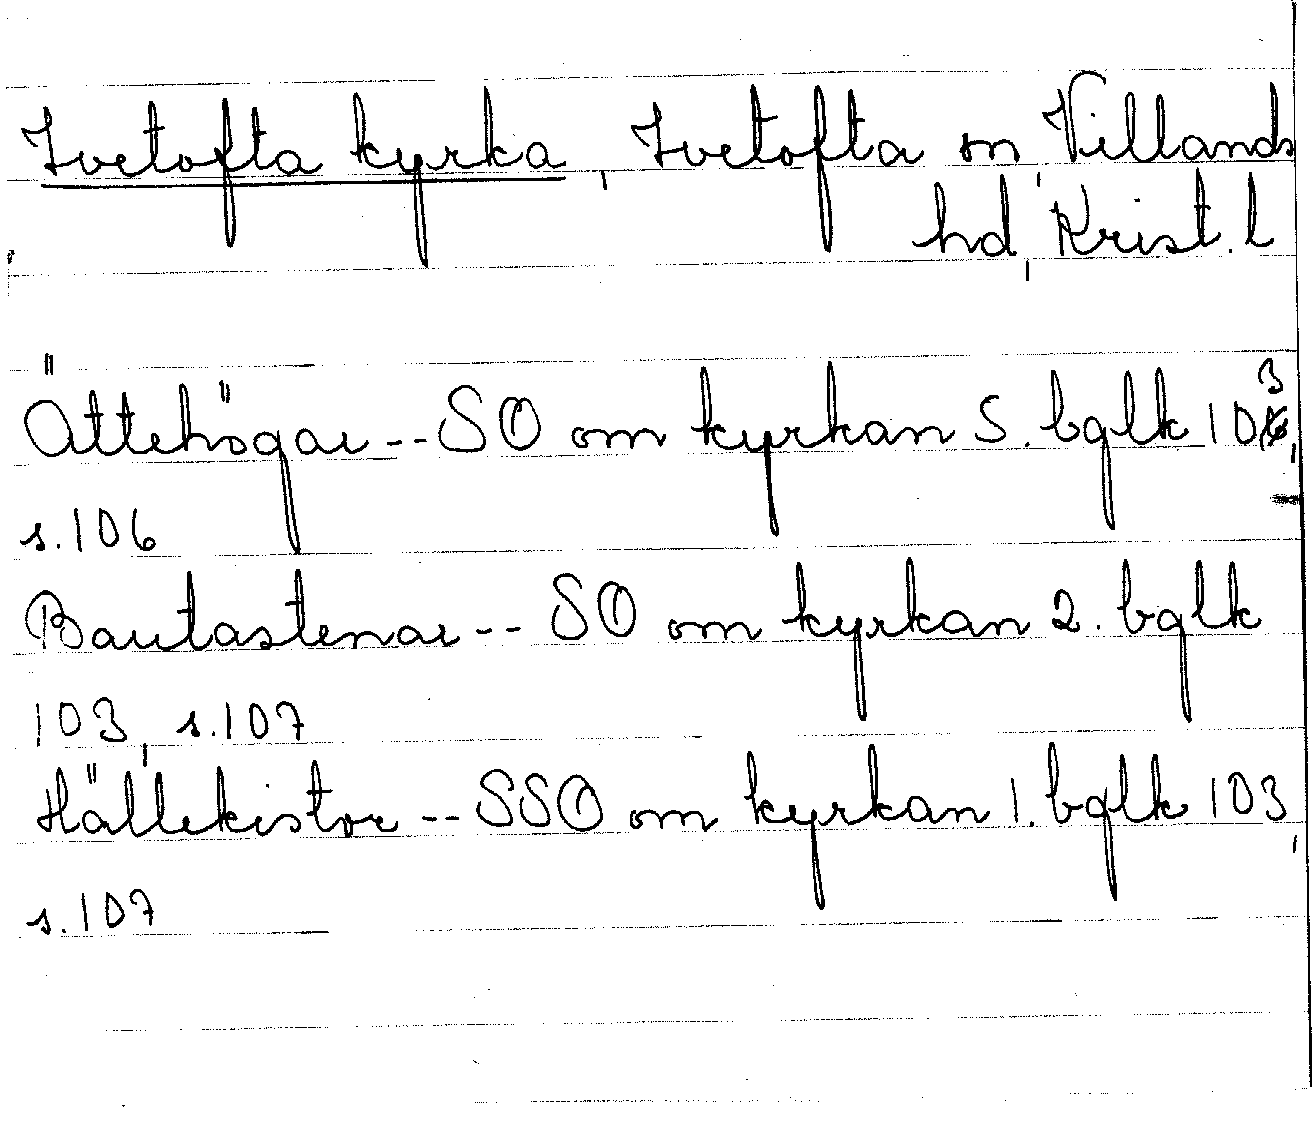 Ivetofta kyrka, Ivetofta sn, Villands
hd, Krist. l
Ättehögar -- SO om kyrkan S. bglk 103,
s. 106
Bautastenar -- SO om kyrkan 2. bglk
103, s. 107
Hällekistor -- SSO om kyrkan 1. bglk 103,
s. 107